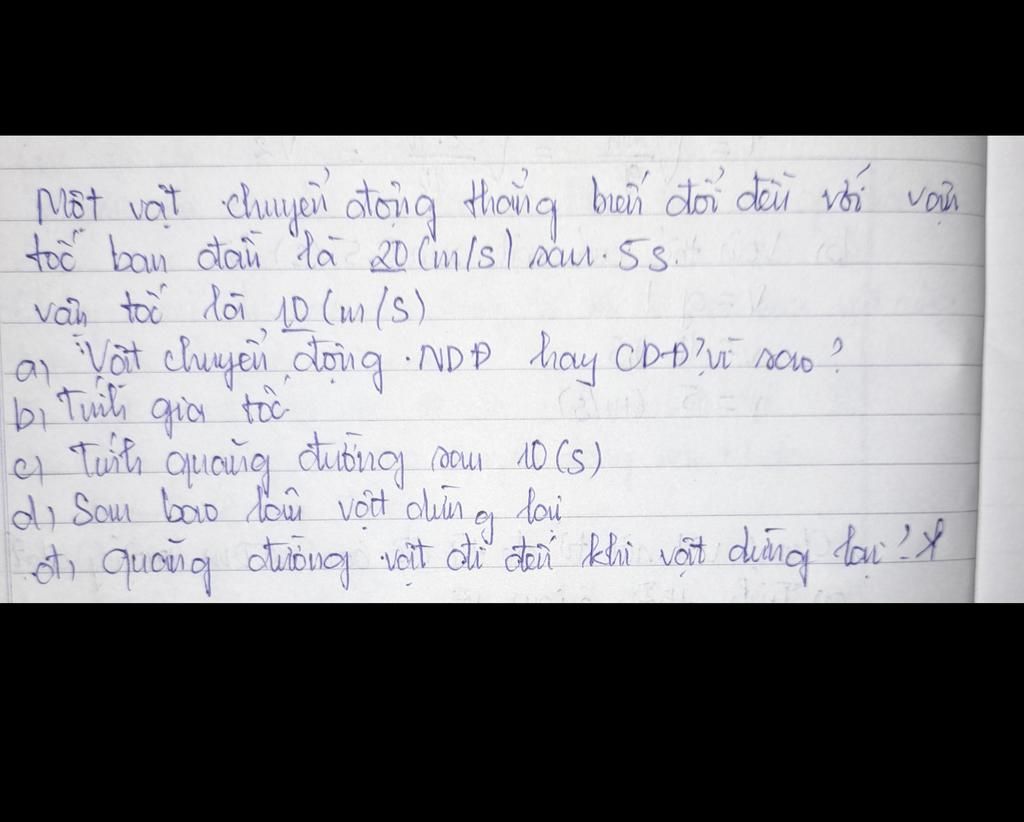 Một vật chuyển động thẳng biến đổi đều với vận
tốc ban đầu là 20 (m/s) sau. 5s.
vận tốc là 10 (m/s)
a) Vật chuyển động NDĐ hay CDĐ? vì sao?
b) Tính gia tốc
c) Tính quãng đường sau 10 (s)
d) Sau bao lâu vật dừng lại
đ) quãng đường vật đi đến khi vật dừng lại?